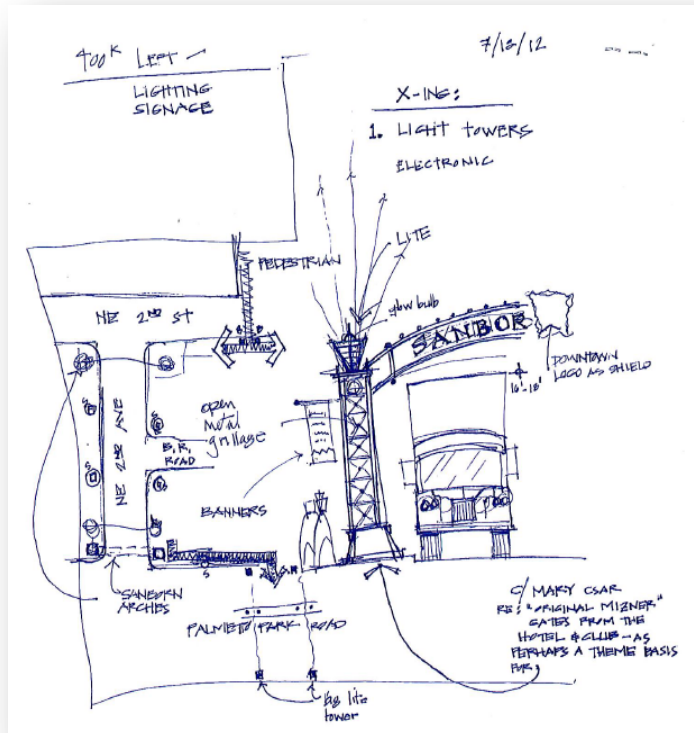 400K LEFT
LIGHTING
SIGNAGE
7/18/12
X-ING:
1. LIGHT TOWERS
ELECTRONIC
LITE
PEDESTRIAN
glow bulb
SANBOR
DOWNTOWN
LOGO AS SHIELD
16'-18'
NE 2ND ST
open
metal
grillage
B.R.
ROAD
NE 2ND AVE
S
S
S
S
BANNERS
SANBORN
ARCHES
S
PALMETTO PARK ROAD
big lite
tower
C/ MARY CSAR
RE: "ORIGINAL MIZNER"
GATES FROM THE
HOTEL & CLUB - AS
PERHAPS A THEME BASIS
FOR: